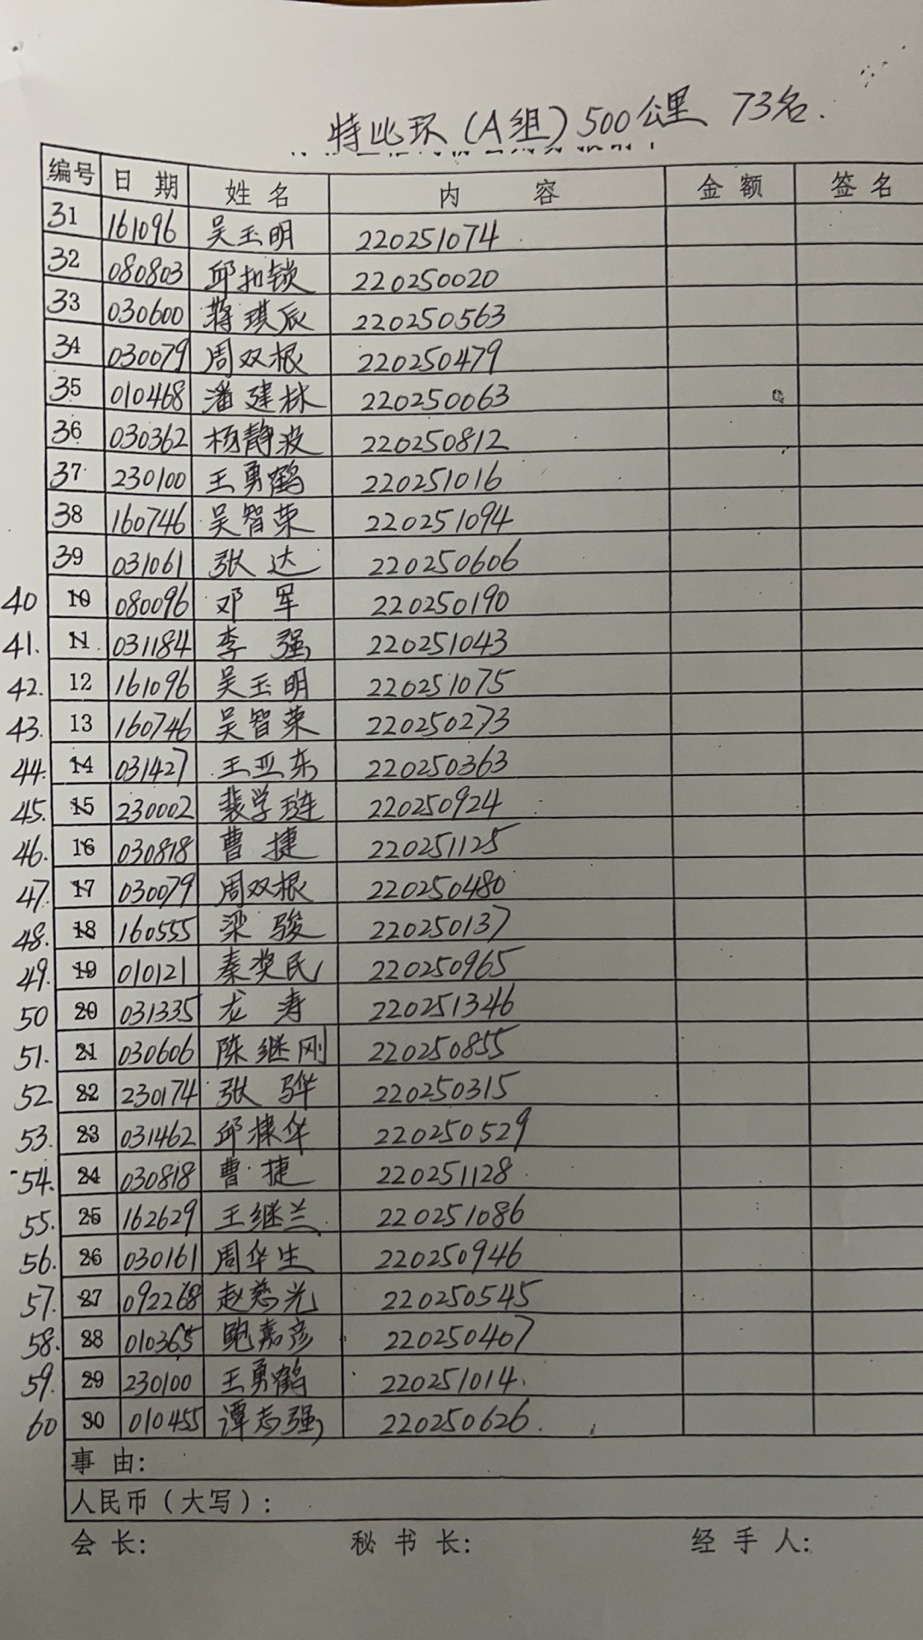 特比环(A组)500公里 73名.
编号 日期 姓名 内容 金额 签名
31 161096 吴玉明 220251074
32 080803 邱扣锁 220250020
33 030600 蒋琪辰 220250563
34 030079 周双根 220250479
35 010468 潘建林 220250063
36 030362 杨静波 220250812
37 230100 王勇鹤 220251016
38 160746 吴智荣 220251094
39 031061 张达 220250606
40 10 080096 邓军 220250190
41. 11 031184 李强 220251043
42. 12 161096 吴玉明 220251075
43. 13 160746 吴智荣 220250273
44. 14 031427 王亚东 220250363
45. 15 230002 裴学琏 220250924
46. 16 030818 曹捷 220251125
47. 17 030079 周双根 220250480
48. 18 160555 梁骏 220250137
49. 19 010121 秦奖民 220250965
50 20 031335 龙涛 220251346
51. 21 030606 陈继刚 220250855
52. 22 230174 张骅 220250315
53. 23 031462 邱棣华 220250529
54. 24 030818 曹捷 220251128
55. 25 162629 王继兰 220251086
56. 26 030161 周华生 220250946
57. 27 092268 赵慈光 220250545
58. 28 010365 鲍嘉彦 220250467
59. 29 230100 王勇鹤 220251014
60 30 010455 谭志强 220250626
事由:
人民币(大写):
会长: 秘书长: 经手人: